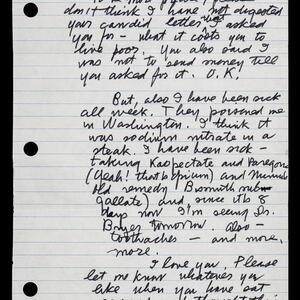 don't think I have not digested
your candid letter I asked
you for - what it costs you to
live poor. You also said I
was not to send money till
you asked for it. O.K.!
But, also I have been sick
all week. They poisoned me
in Washington. I think it
was sodium nitrate in a
steak. I have been sick -
taking Kaopectate and Paregoric
(Yeah! that's opium) and
old remedy Bismuth sub-
gallate) and since it's 8
days now I'm seeing Dr.
tomorrow. Also -
toothaches - and more,
more.
I love you. Please
let me know whatever you
like when you have eat